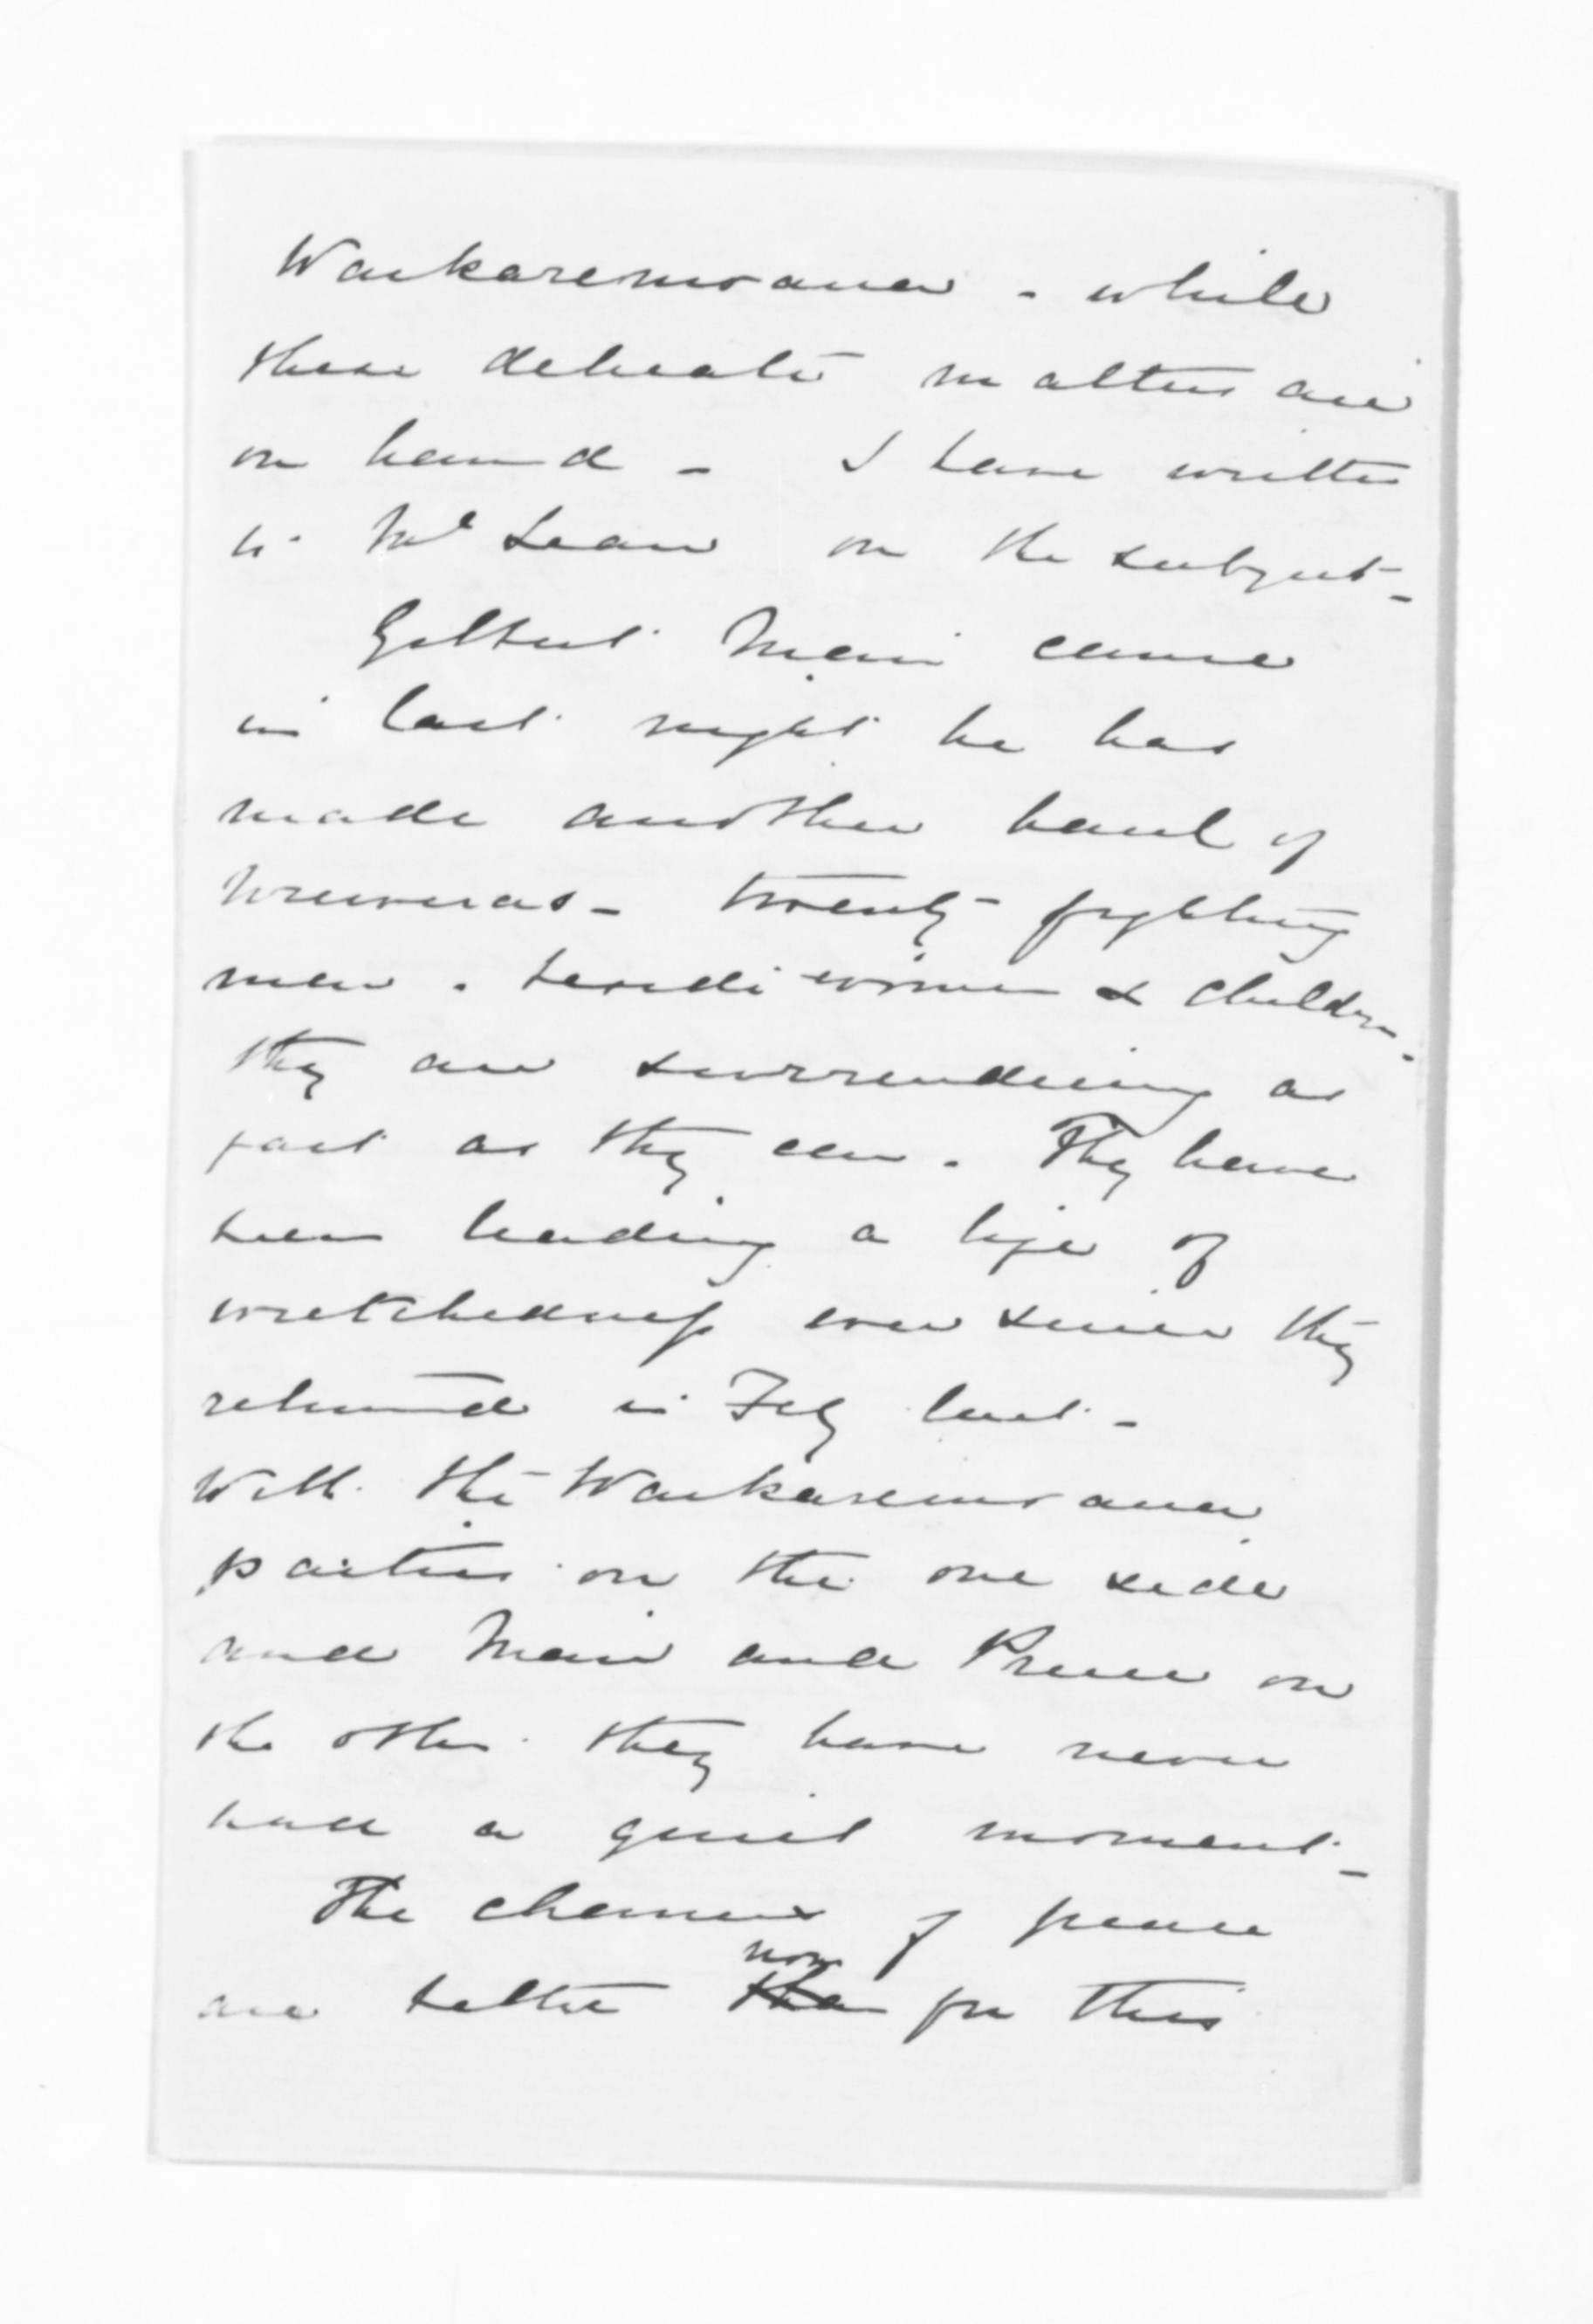 Waikaremoana - while
these delicate matters are
on hand - I have written
to McLean on the subject -
Gilbert Mair came
in last night he has
made another haul of
Ureweras - twenty fighting
men . besides women & children.
they are surrendering as
fast as they can . They have
been leading a life of
wretchedness ever since they
returned in Feby last -
With the Waikaremoana
parties on the one side
and Mair and Preece on
the other they have never
had a quiet moment -
The chances of peace
now
are better than for this